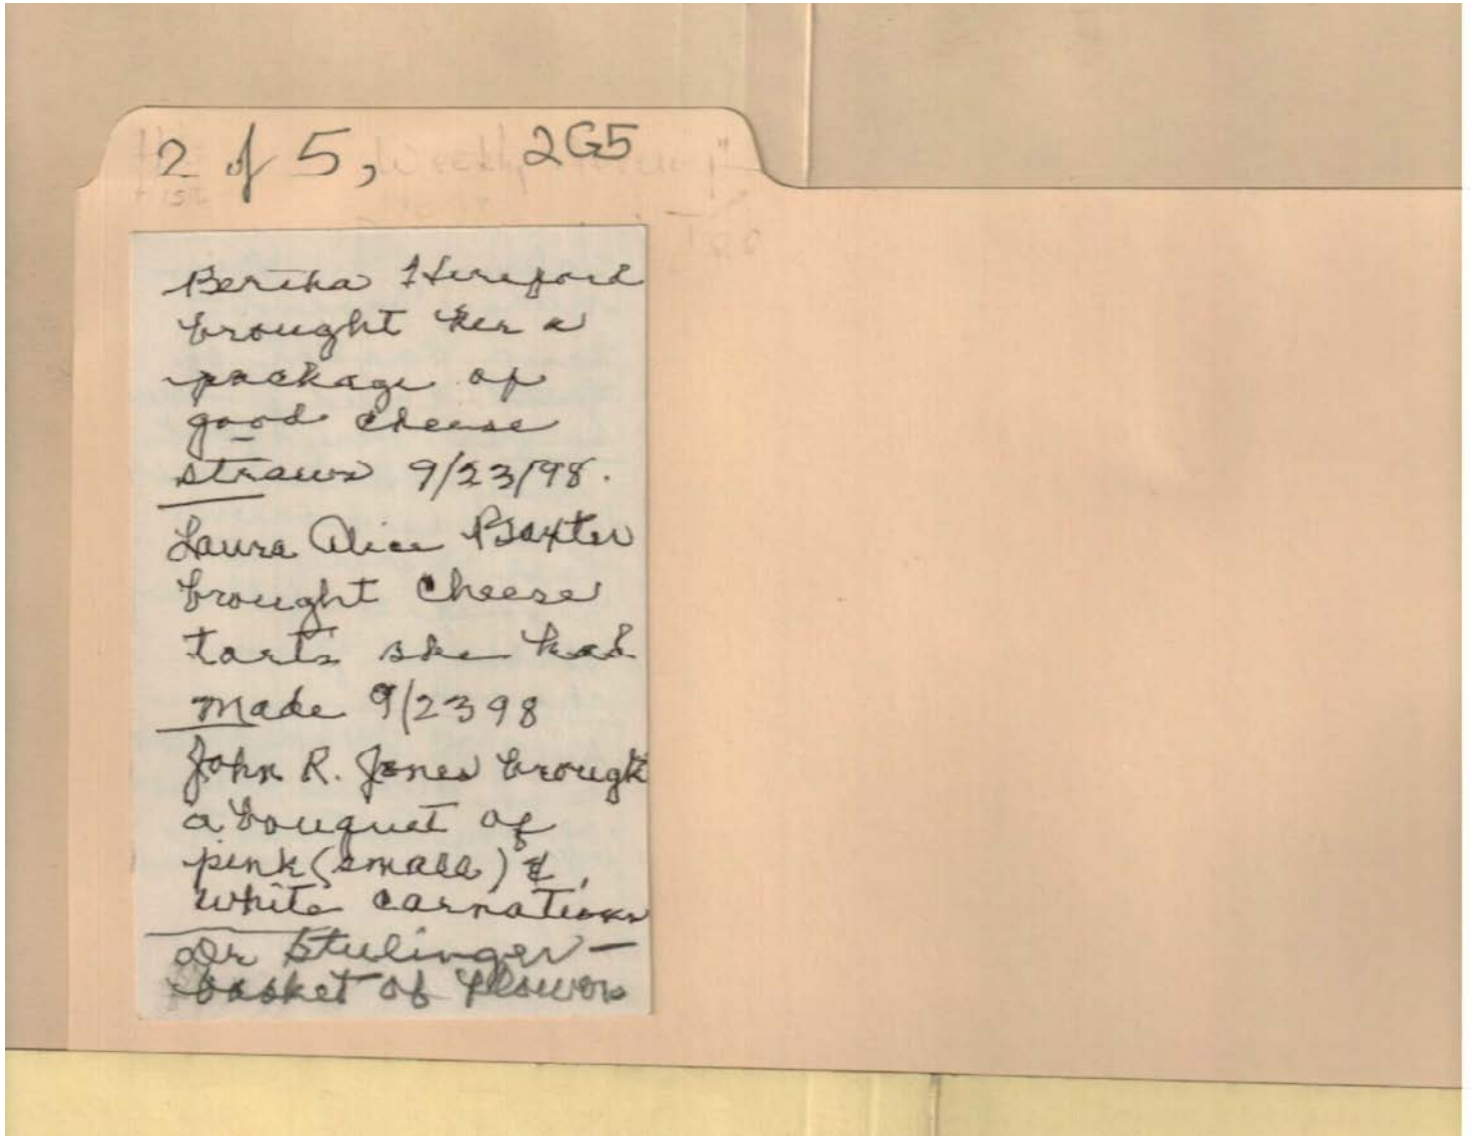 2 of 5, 2G5
Weekly
Bertha Hereford
brought her a
package of
good cheese
straws 9/23/98.
Laura Alice Baxter
brought cheese
tarts she had
made 9/2398
John R. Jones brought
a bouquet of
pink (small) &
white carnations
Dr Stulinger —
basket of flowers